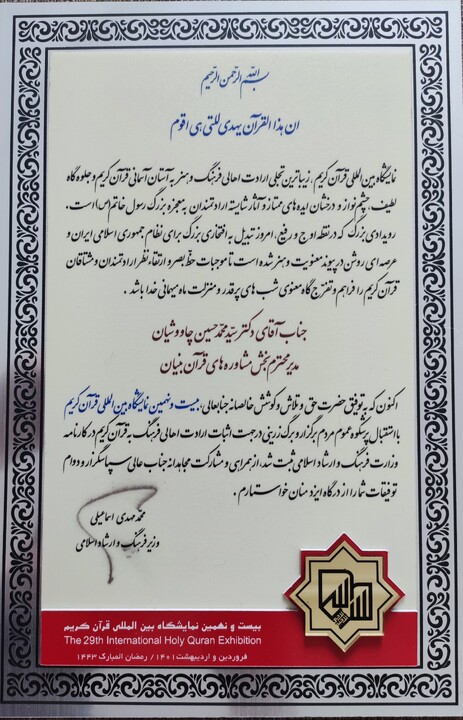 بسم الله الرحمن الرحیم
ان هذا القرآن یهدی للتی هی اقوم
نمایشگاه بین المللی قرآن کریم، زیباترین تجلی ارادت اهالی فرهنگ و هنر به آستان آسمانی قرآن کریم و جلوه گاه
لطیف، چشم نواز و درخشان ایده های ممتاز و آثار شایسته ارادتمندان به معجزه بزرگ رسول خاتم(ص) است.
رویدادی بزرگ که در نقطه اوج و رفیع، امروز تبدیل به افتخاری بزرگ برای نظام جمهوری اسلامی ایران و
عرصه ای روشن در پیوند معنویت و هنر شده است تا موجبات حظ بصر و ارتقاء نظر ارادتمندان و مشتاقان
قرآن کریم را فراهم و تفرج گاه معنوی شب های پر قدر و منزلت ماه میهمانی خدا باشد.
جناب آقای دکتر سید محمد حسین چاووشیان
مدیر محترم بخش مشاوره های قرآن بنیان
اکنون که به توفیق حضرت حق و تلاش و کوشش خالصانه جنابعالی، بیست و نهمین نمایشگاه بین المللی قرآن کریم
با استقبال پرشکوه عموم مردم برگزار و برگ زرینی در جهت اثبات ارادت اهالی فرهنگ به قرآن کریم در کارنامه
وزارت فرهنگ و ارشاد اسلامی ثبت شد، از همراهی و مشارکت مجاهدانه جناب عالی سپاسگزار و دوام
توفیقات شما را از درگاه ایزد منان خواستارم.
محمد مهدی اسماعیلی
وزیر فرهنگ و ارشاد اسلامی
بیست و نهمین نمایشگاه بین المللی قرآن کریم
The 29th International Holy Quran Exhibition
فروردین و اردیبهشت ۱۴۰۱ / رمضان المبارک ۱۴۴۳